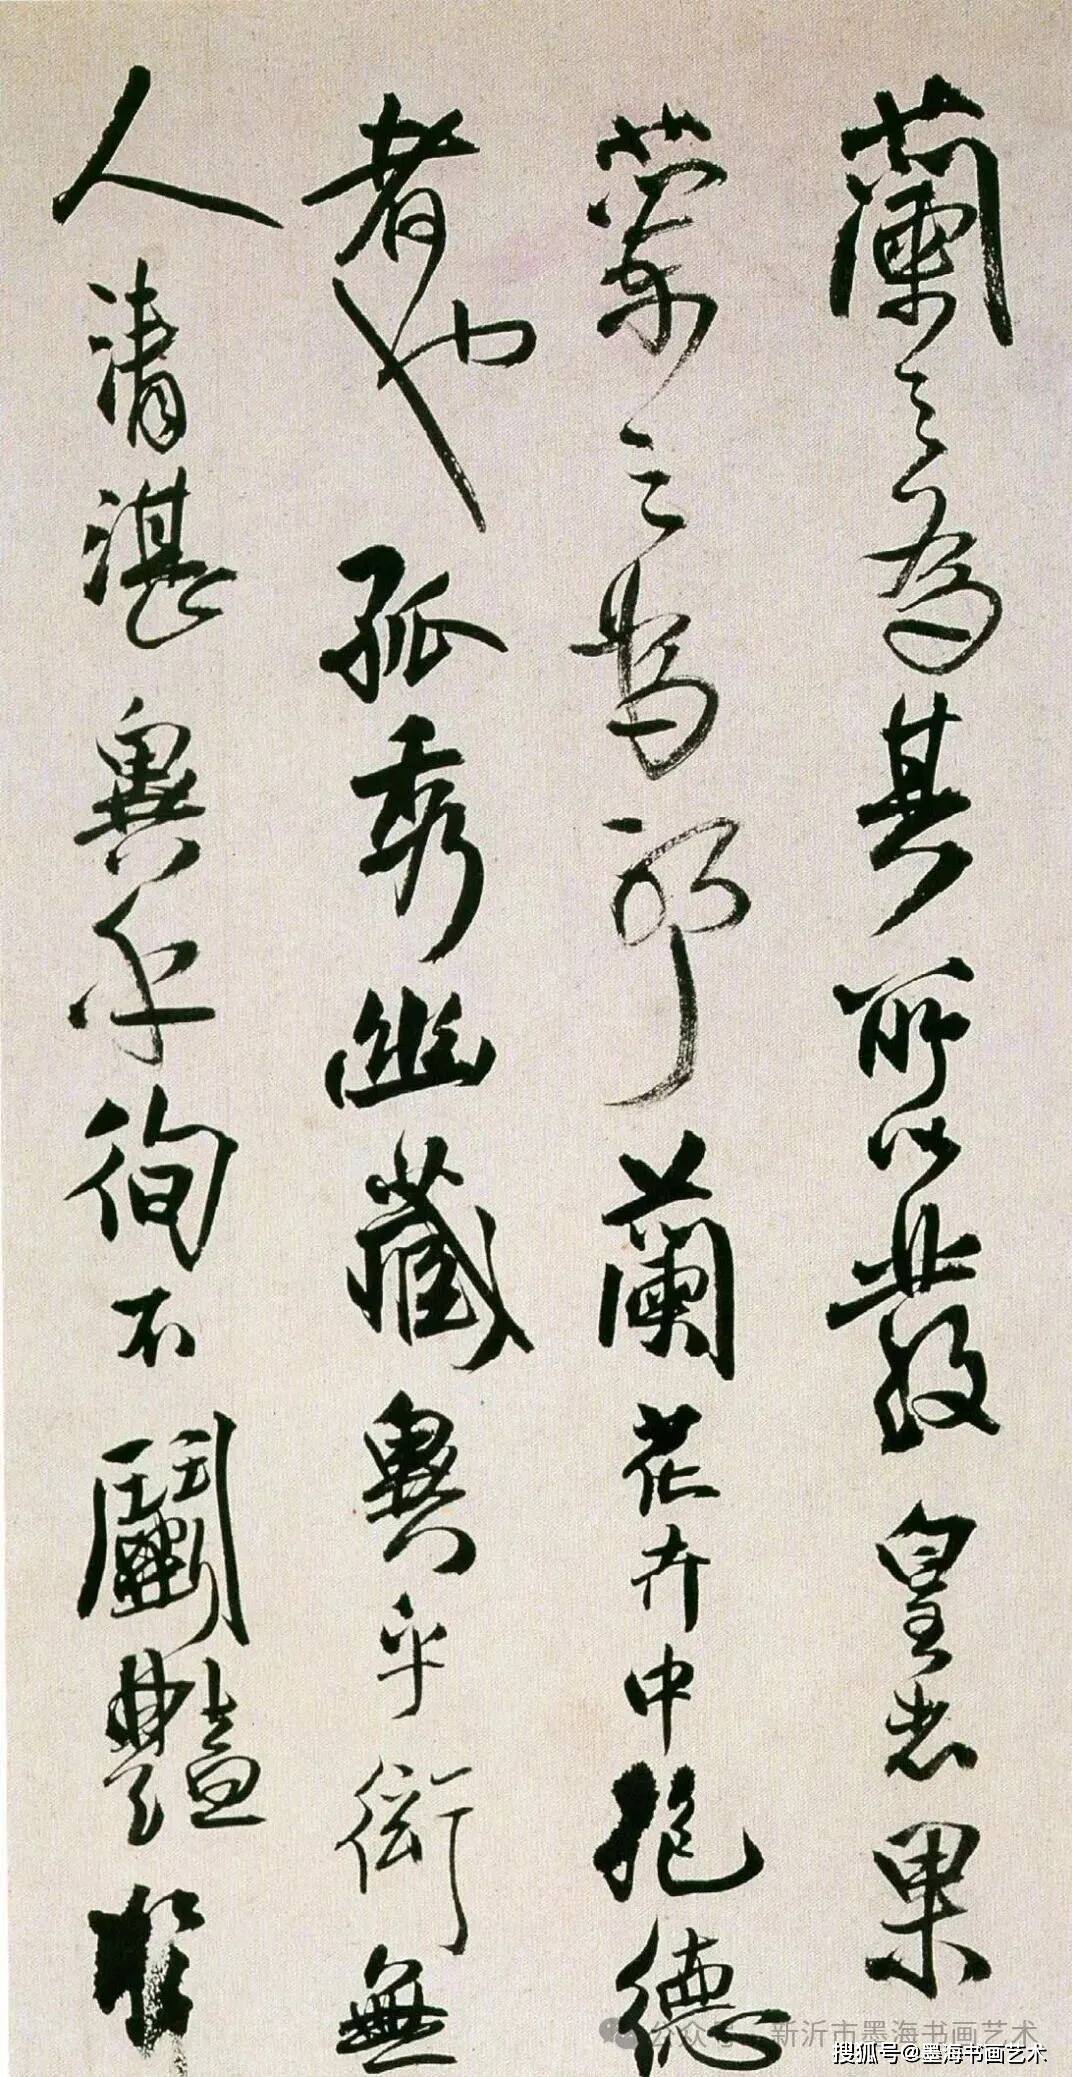 蘭之為其所以發皇者果
蘭之為耶蘭花卉中抱德
者也孤秀幽藏異乎衒無
人清湛異乎徇不鬭豔
公众号 新沂市墨海书画艺术
搜狐号@墨海书画艺术